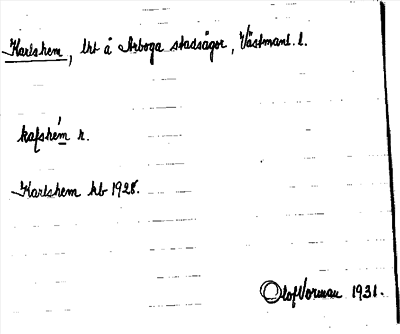 Karlshem, lht å Arboga stadsägor, Västmanl. l.
kafshem n.
Karlshem kb 1928.
Olof Vorman 1931.